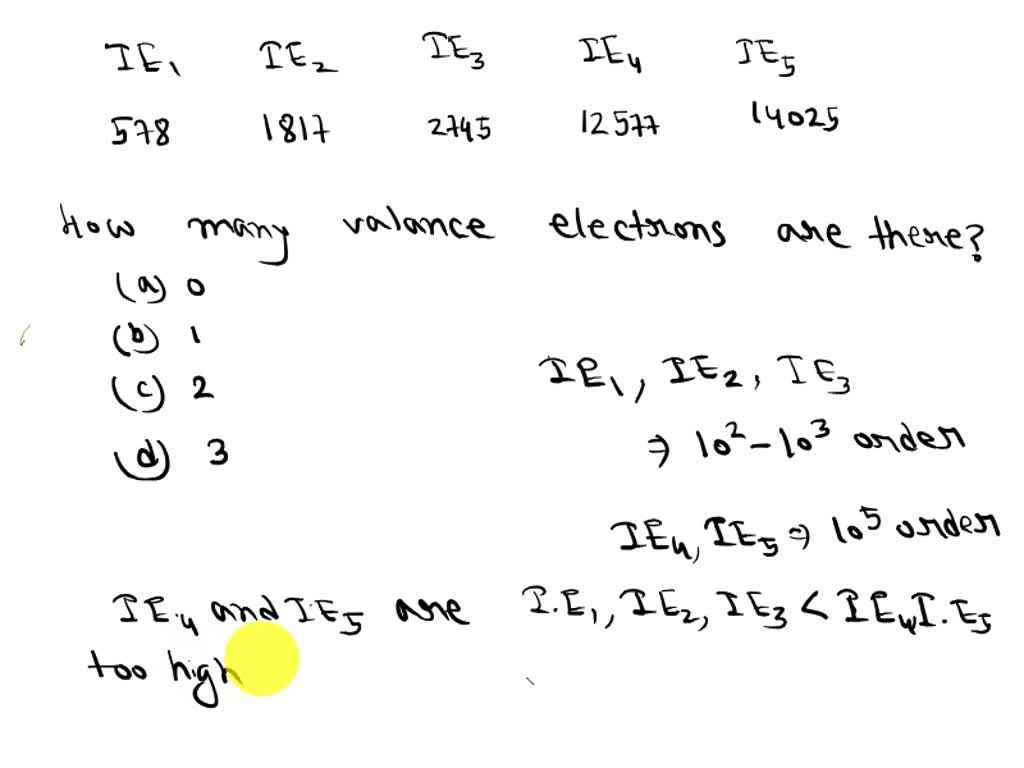 IE₁ IE₂ IE₃ IE₄ IE₅
578 1817 2745 12577 14025
How many valance electrons are there?
(a) 0
(b) 1
(c) 2
(d) 3
IE₁, IE₂, IE₃
⇒ 10² - 10³ order
IE₄, IE₅ ⇒ 10⁵ order
IE₄ and IE₅ are
too high
I.E₁, IE₂, IE₃ < IE₄ I.E₅